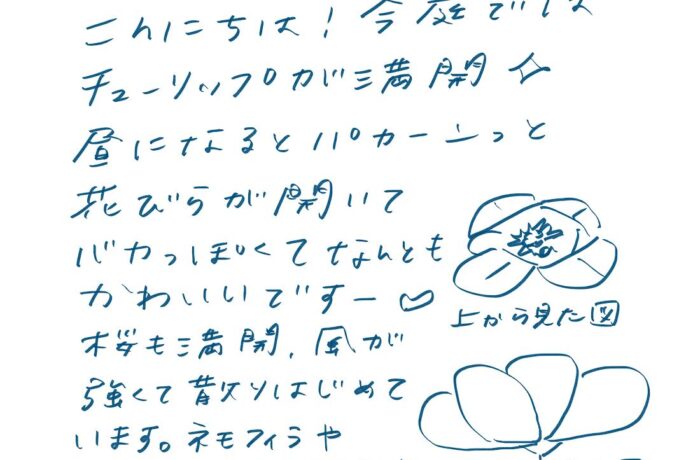 こんにちは！今庭では
チューリップが満開✧
昼になるとパカーンっと
花びらが開いて
バカっぽくてなんとも
かわいいですー♡
上から見た図
桜も満開、風が
強くて散りはじめて
います。ネモフィラや